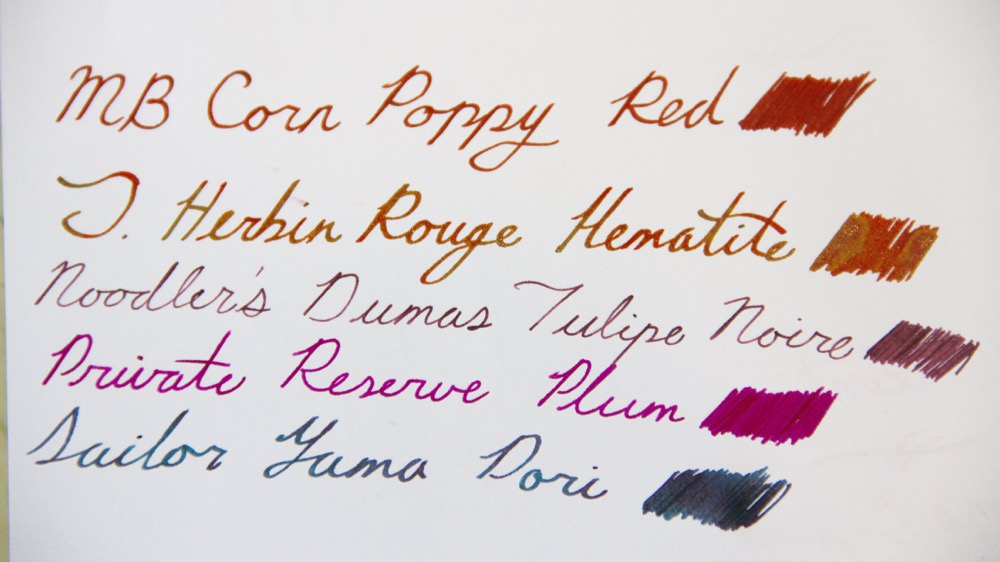 MB Corn Poppy Red
J. Herbin Rouge Hematite
Noodler's Dumas Tulipe Noire
Private Reserve Plum
Sailor Yama Dori